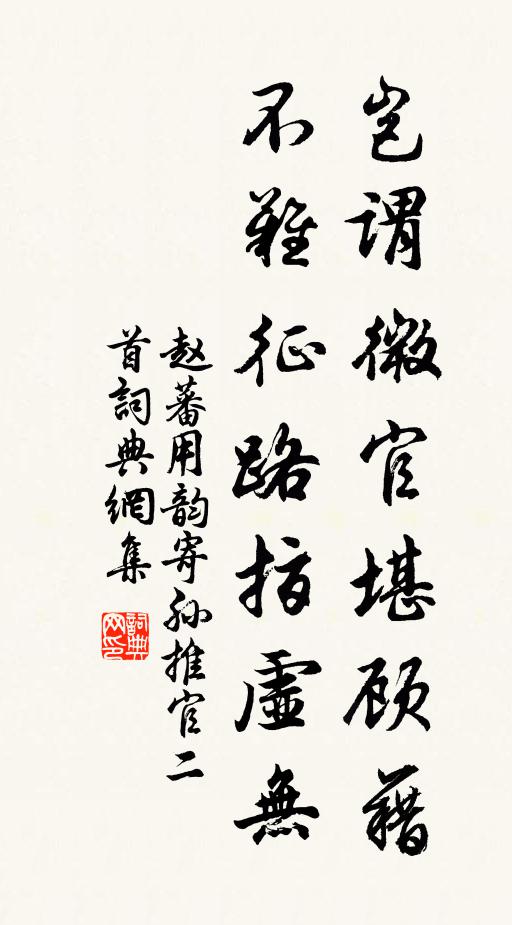 岂谓微官堪顾藉
不難征路指虛無
赵蕃用韵寄孙推官二
首詞典網集
詞典
网印